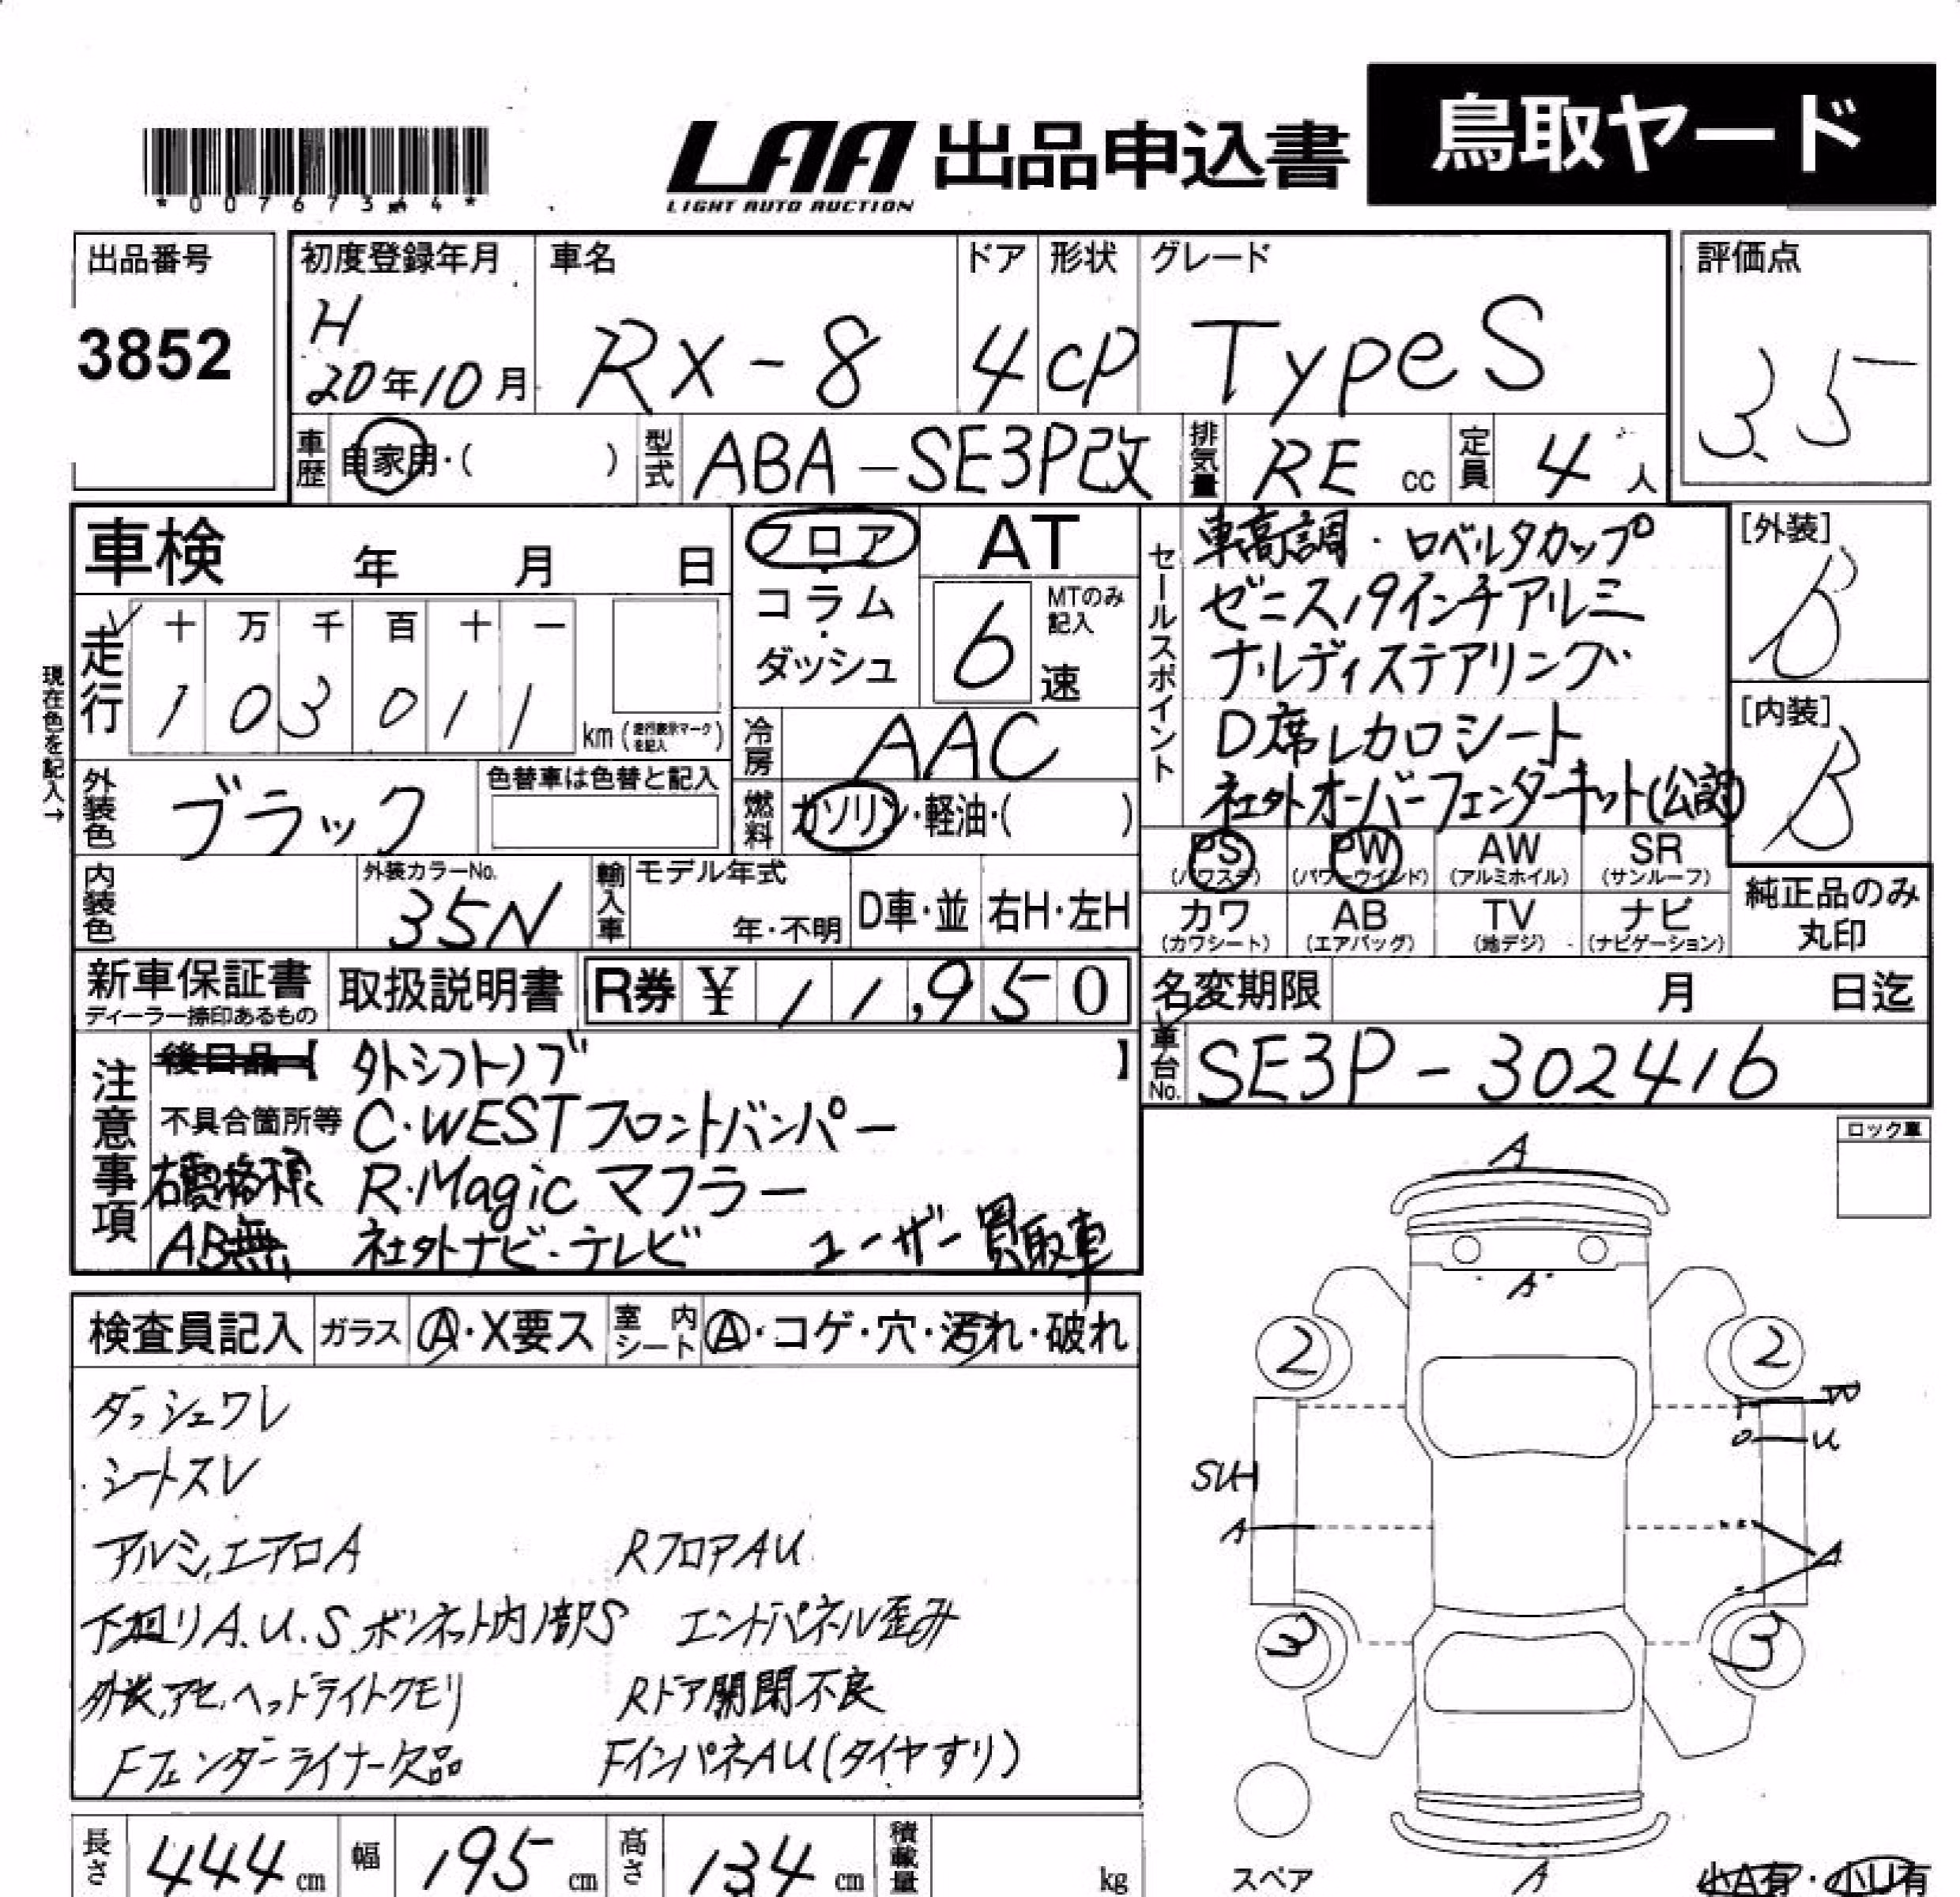 *0076734 4*
LAA 出品申込書 鳥取ヤード
LIGHT AUTO AUCTION
出品番号
3852
初度登録年月
H
20年10月
車名
RX-8
ドア
4
形状
CP
グレード
Type S
評価点
3.5
車歴 自家用・( )
型式 ABA-SE3P改
排気量 RE cc
定員 4人
車検 年 月 日
フロア・コラム・ダッシュ
AT
6 MTのみ記入
速
現在色を記入→
走行
十 万 千 百 十 一
1 0 3 0 1 1 km (走行表示マークを記入)
冷房 AAC
燃料 ガソリン・軽油・( )
外装色 ブラック
色替車は色替と記入
内装色
外装カラーNo.
35N
輸入車
モデル年式
年・不明
D車・並
右H・左H
セールスポイント
車高調・ロベルタカップ
ゼニス19インチアルミ
ナルディステアリング
D席レカロシート
社外オーバーフェンダーキット(公認)
[外装]
B
[内装]
B
PS (パワステ)
PW (パワーウインド)
AW (アルミホイル)
SR (サンルーフ)
カワ (カワシート)
AB (エアバッグ)
TV (地デジ)
ナビ (ナビゲーション)
純正品のみ丸印
新車保証書
ディーラー捺印あるもの
取扱説明書
R券 ¥ 11,950
名変期限 月 日迄
車台No. SE3P-302416
注意事項
後日品【 外シフトノブ 】
不具合箇所等 C・WESTフロントバンパー
R・Magic マフラー
AB無 社外ナビ・テレビ ユーザー買取車
検査員記入
ガラス Ⓐ・X要ス
室内シート Ⓐ・コゲ・穴・汚れ・破れ
ダッシュワレ
シートスレ
アルミ、エアロA RフロアAU
下廻りA.U.S.ボンネット内部S エンドパネル歪み
外装アセ、ヘッドライトクモリ Rドア開閉不良
Fフェンダーライナー欠品 FインパネAU(タイヤすり)
ロック車
A
A
2 2
U
SUH
A A
3 3
スペア
A
小A有・小U有
長さ 444 cm
幅 195 cm
高さ 134 cm
積載量 kg